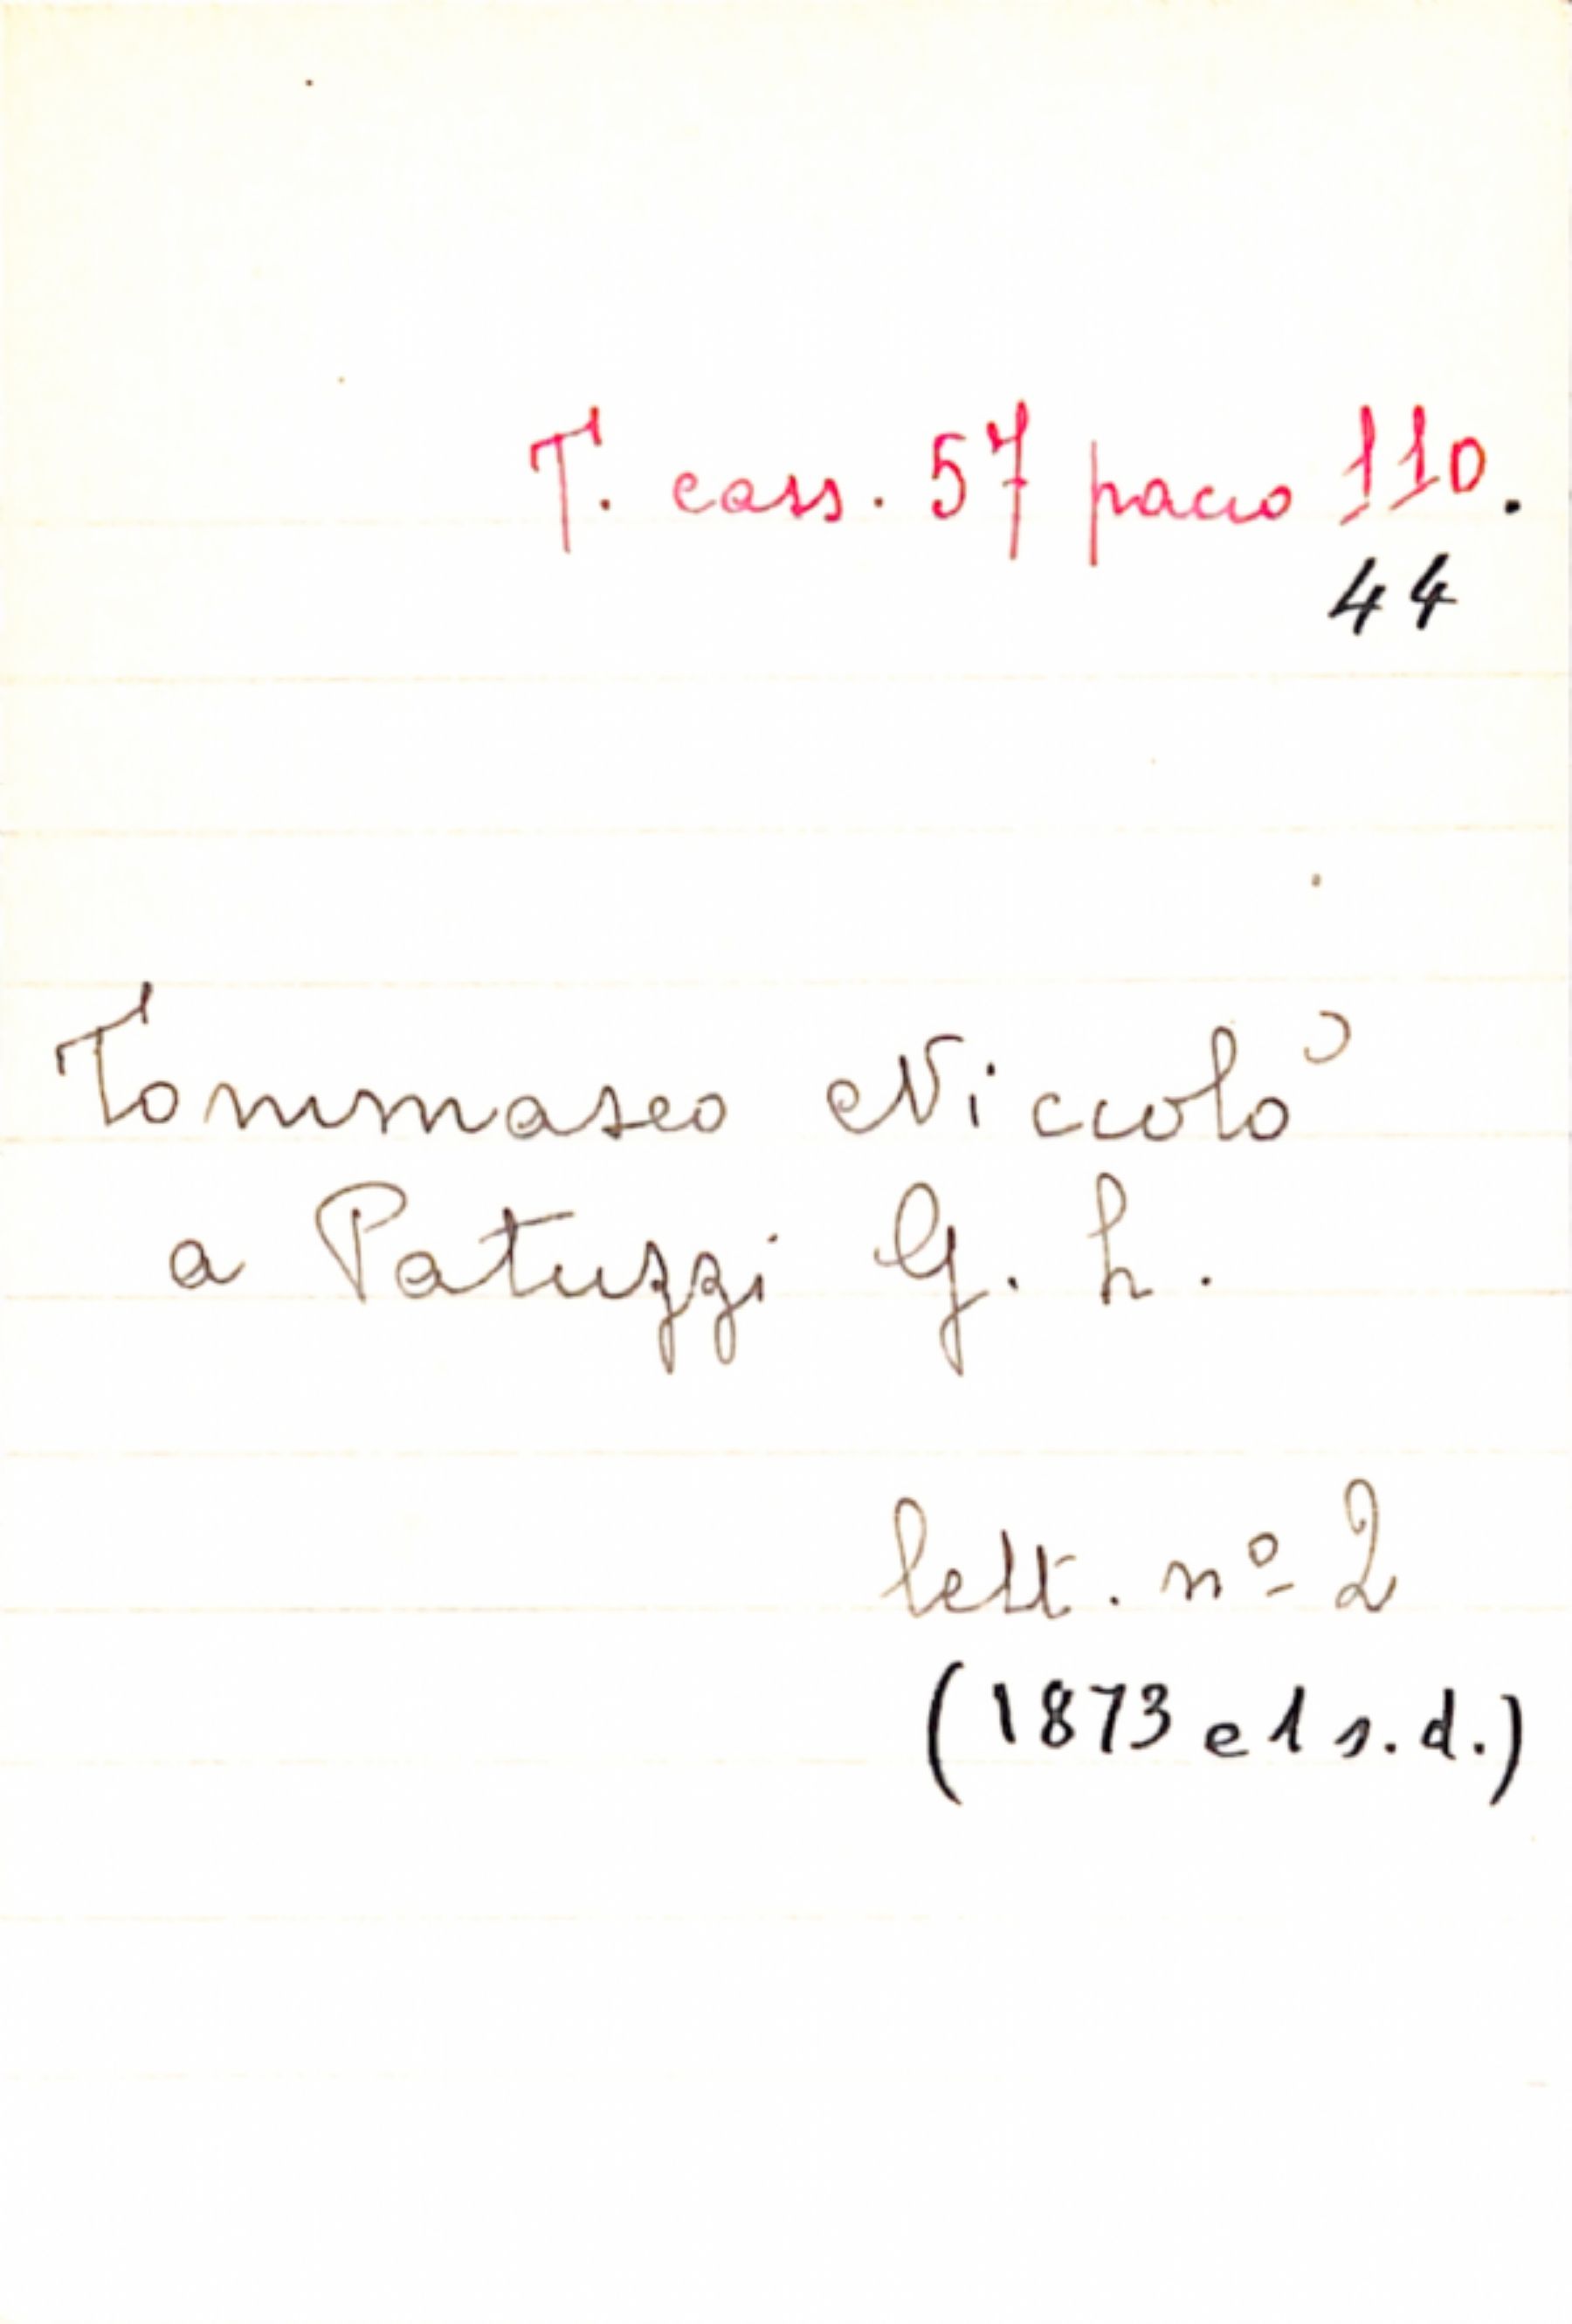 T. cass. 57 pacco 110.
44
Tommaseo Niccolò
a Patuzzi G. L.
lett. nº 2
(1873 e 1 s.d.)